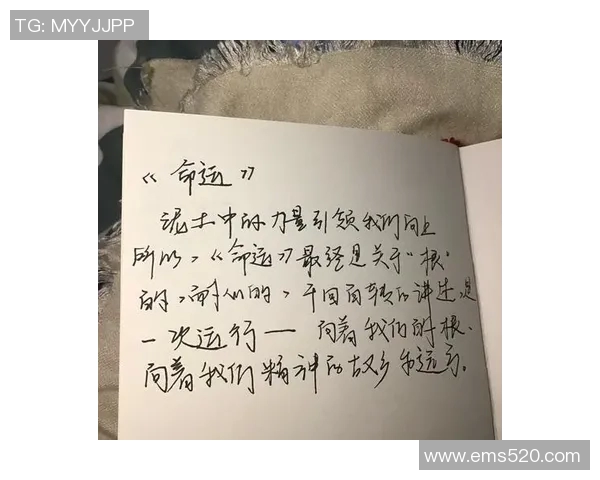 TG: MYYJJPP
《命运》
泥土中的力量引领我们向上
所以，《命运》最终是关于“根”
的，而人们的，千回百转的讲述，是
一次运行——向着我们的根、
向着我们精神的故乡和远方。
www.ems520.com